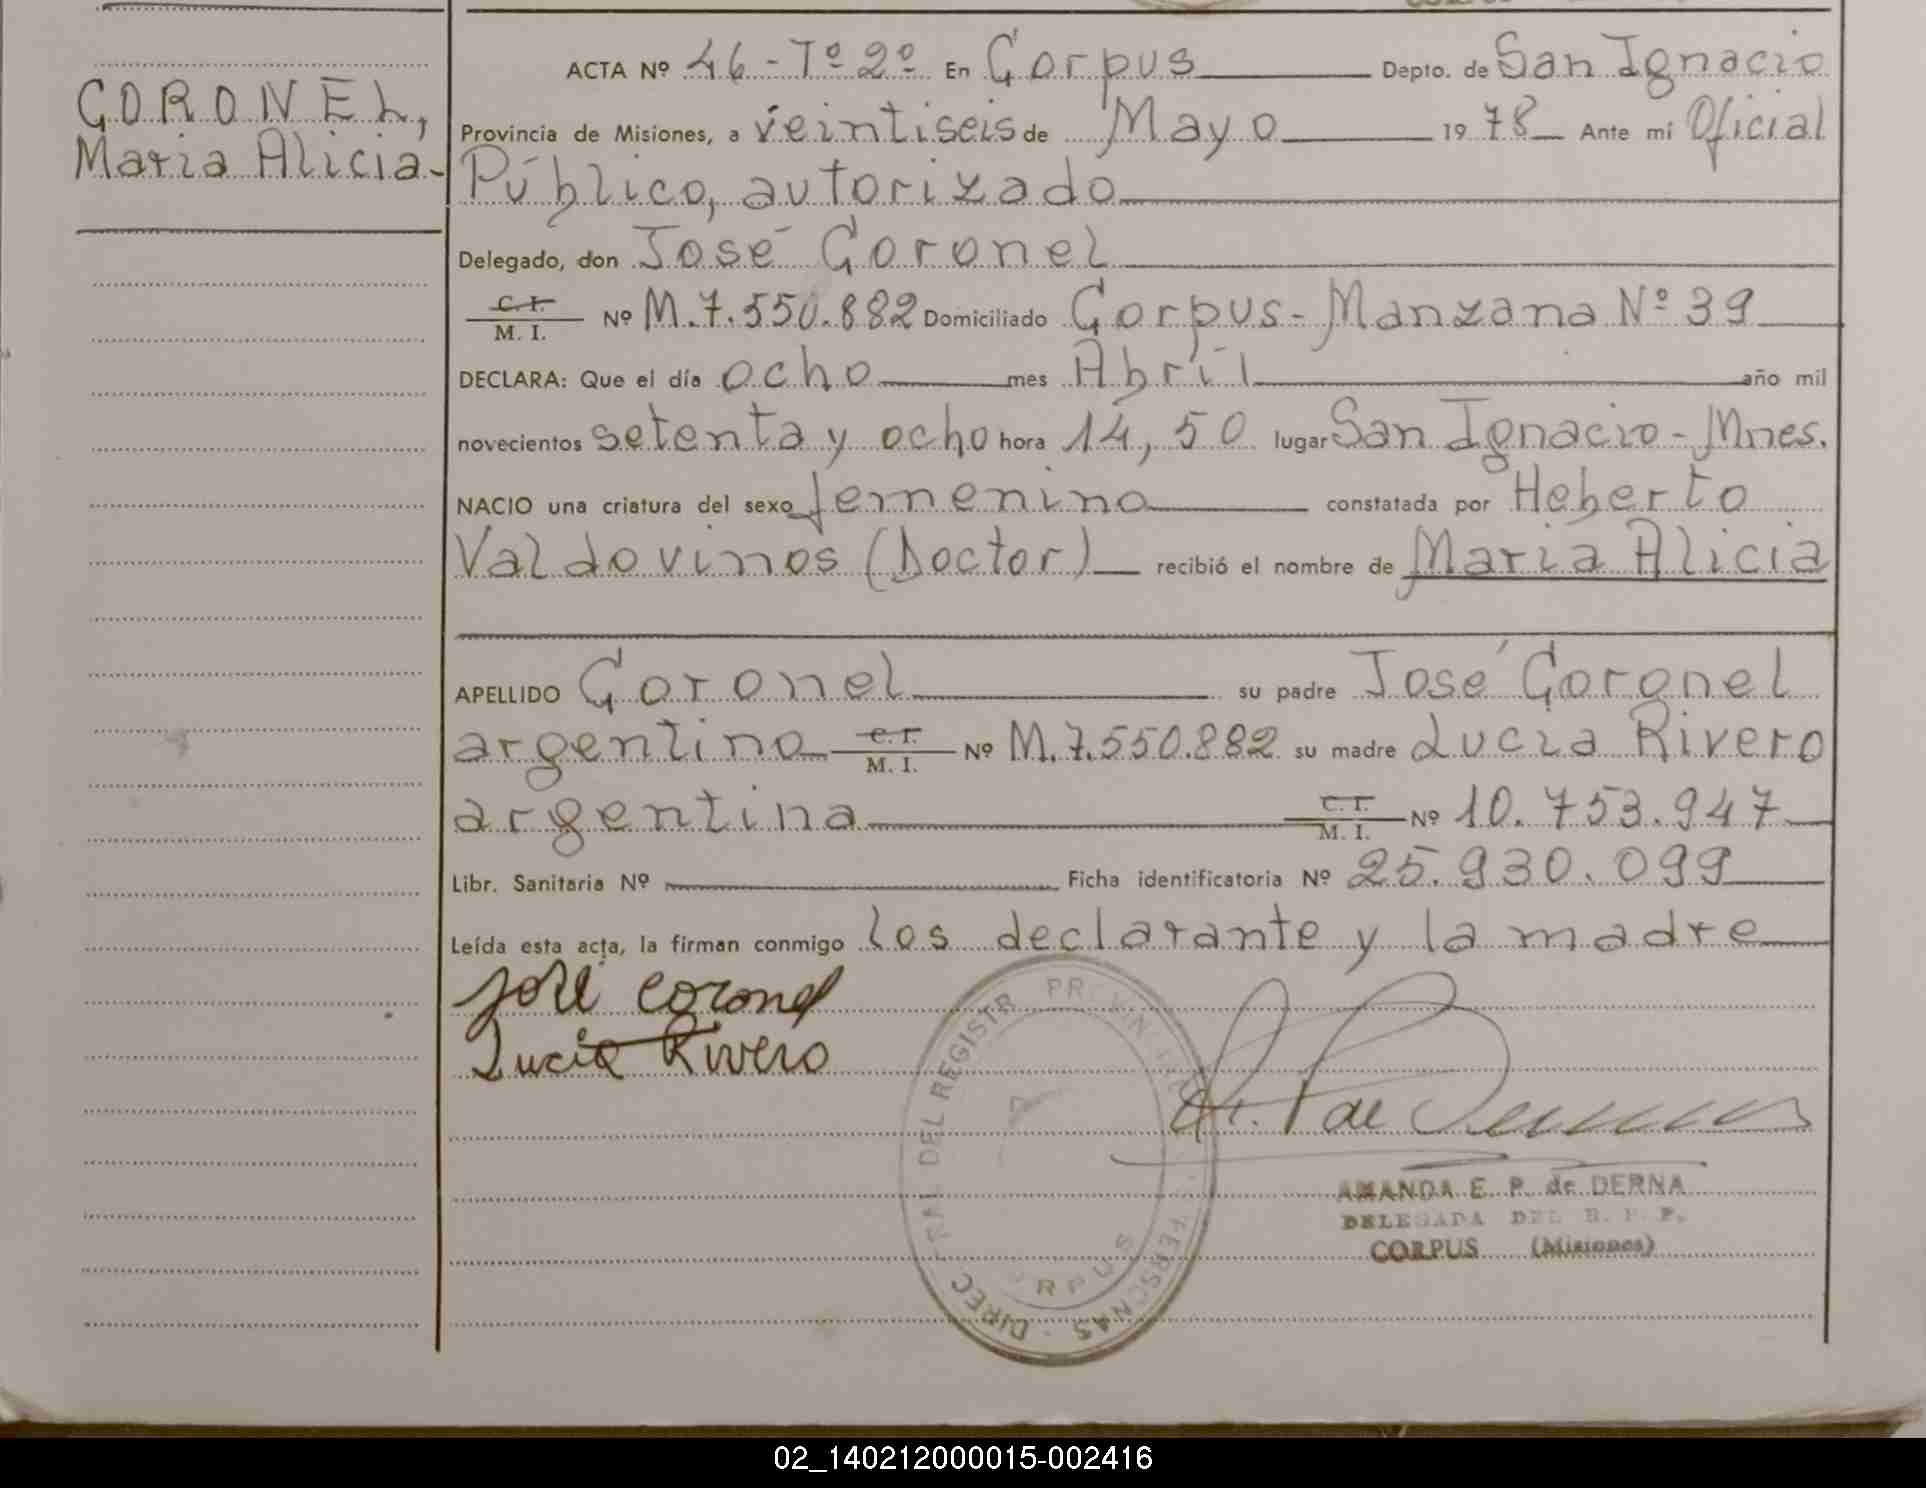 CORONEL,
Maria Alicia-
ACTA Nº 46 - Tº 2º En Corpus Depto. de San Ignacio
Provincia de Misiones, a veintiseis de Mayo 19 78 Ante mí Oficial
Público, autorizado
Delegado, don José Coronel
C. I.
M. I. Nº M. 7.550.882 Domiciliado Corpus - Manzana Nº 39
DECLARA: Que el día ocho mes Abril año mil
novecientos setenta y ocho hora 14,50 lugar San Ignacio - Mnes.
NACIO una criatura del sexo femenino constatada por Heberto
Valdovinos (Doctor) recibió el nombre de Maria Alicia
APELLIDO Coronel su padre José Coronel
argentino C. I. M. I. Nº M. 7.550.882 su madre Lucia Rivero
argentina C. I. M. I. Nº 10.753.947
Libr. Sanitaria Nº Ficha identificatoria Nº 25.930.099
Leída esta acta, la firman conmigo los declarante y la madre
José Coronel
Lucia Rivero
AMANDA E. P. de DERNA
DELEGADA DEL R. P. P.
CORPUS (Misiones)
02_140212000015-002416